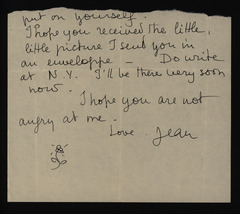 put on yourself.
I hope you received the little,
little picture I sent you in
an enveloppe – Do write
at N.Y. I'll be there very soon
now.
I hope you are not
angry at me.
Love. Jean